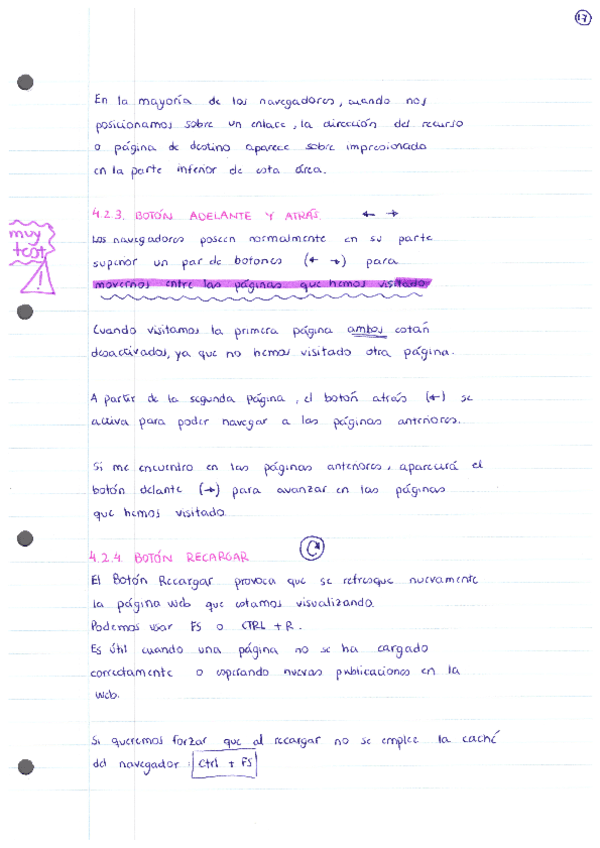 17
En la mayoría de los navegadores, cuando nos
posicionamos sobre un enlace, la dirección del recurso
o página de destino aparece sobre impresionada
en la parte inferior de esta área.
4.2.3. BOTÓN ADELANTE Y ATRÁS. ← →
muy
test
!
Los navegadores poseen normalmente en su parte
superior un par de botones (← →) para
movernos entre las páginas que hemos visitado
Cuando visitamos la primera página ambos están
desactivados, ya que no hemos visitado otra página.
A partir de la segunda página, el botón atrás (←) se
activa para poder navegar a las páginas anteriores.
Si me encuentro en las páginas anteriores, aparecerá el
botón delante (→) para avanzar en las páginas
que hemos visitado.
4.2.4. BOTÓN RECARGAR
El Botón Recargar provoca que se refresque nuevamente
la página web que estamos visualizando.
Podemos usar F5 o CTRL + R.
Es útil cuando una página no se ha cargado
correctamente o esperando nuevas publicaciones en la
web.
Si queremos forzar que al recargar no se emplee la caché
del navegador: Ctrl + F5